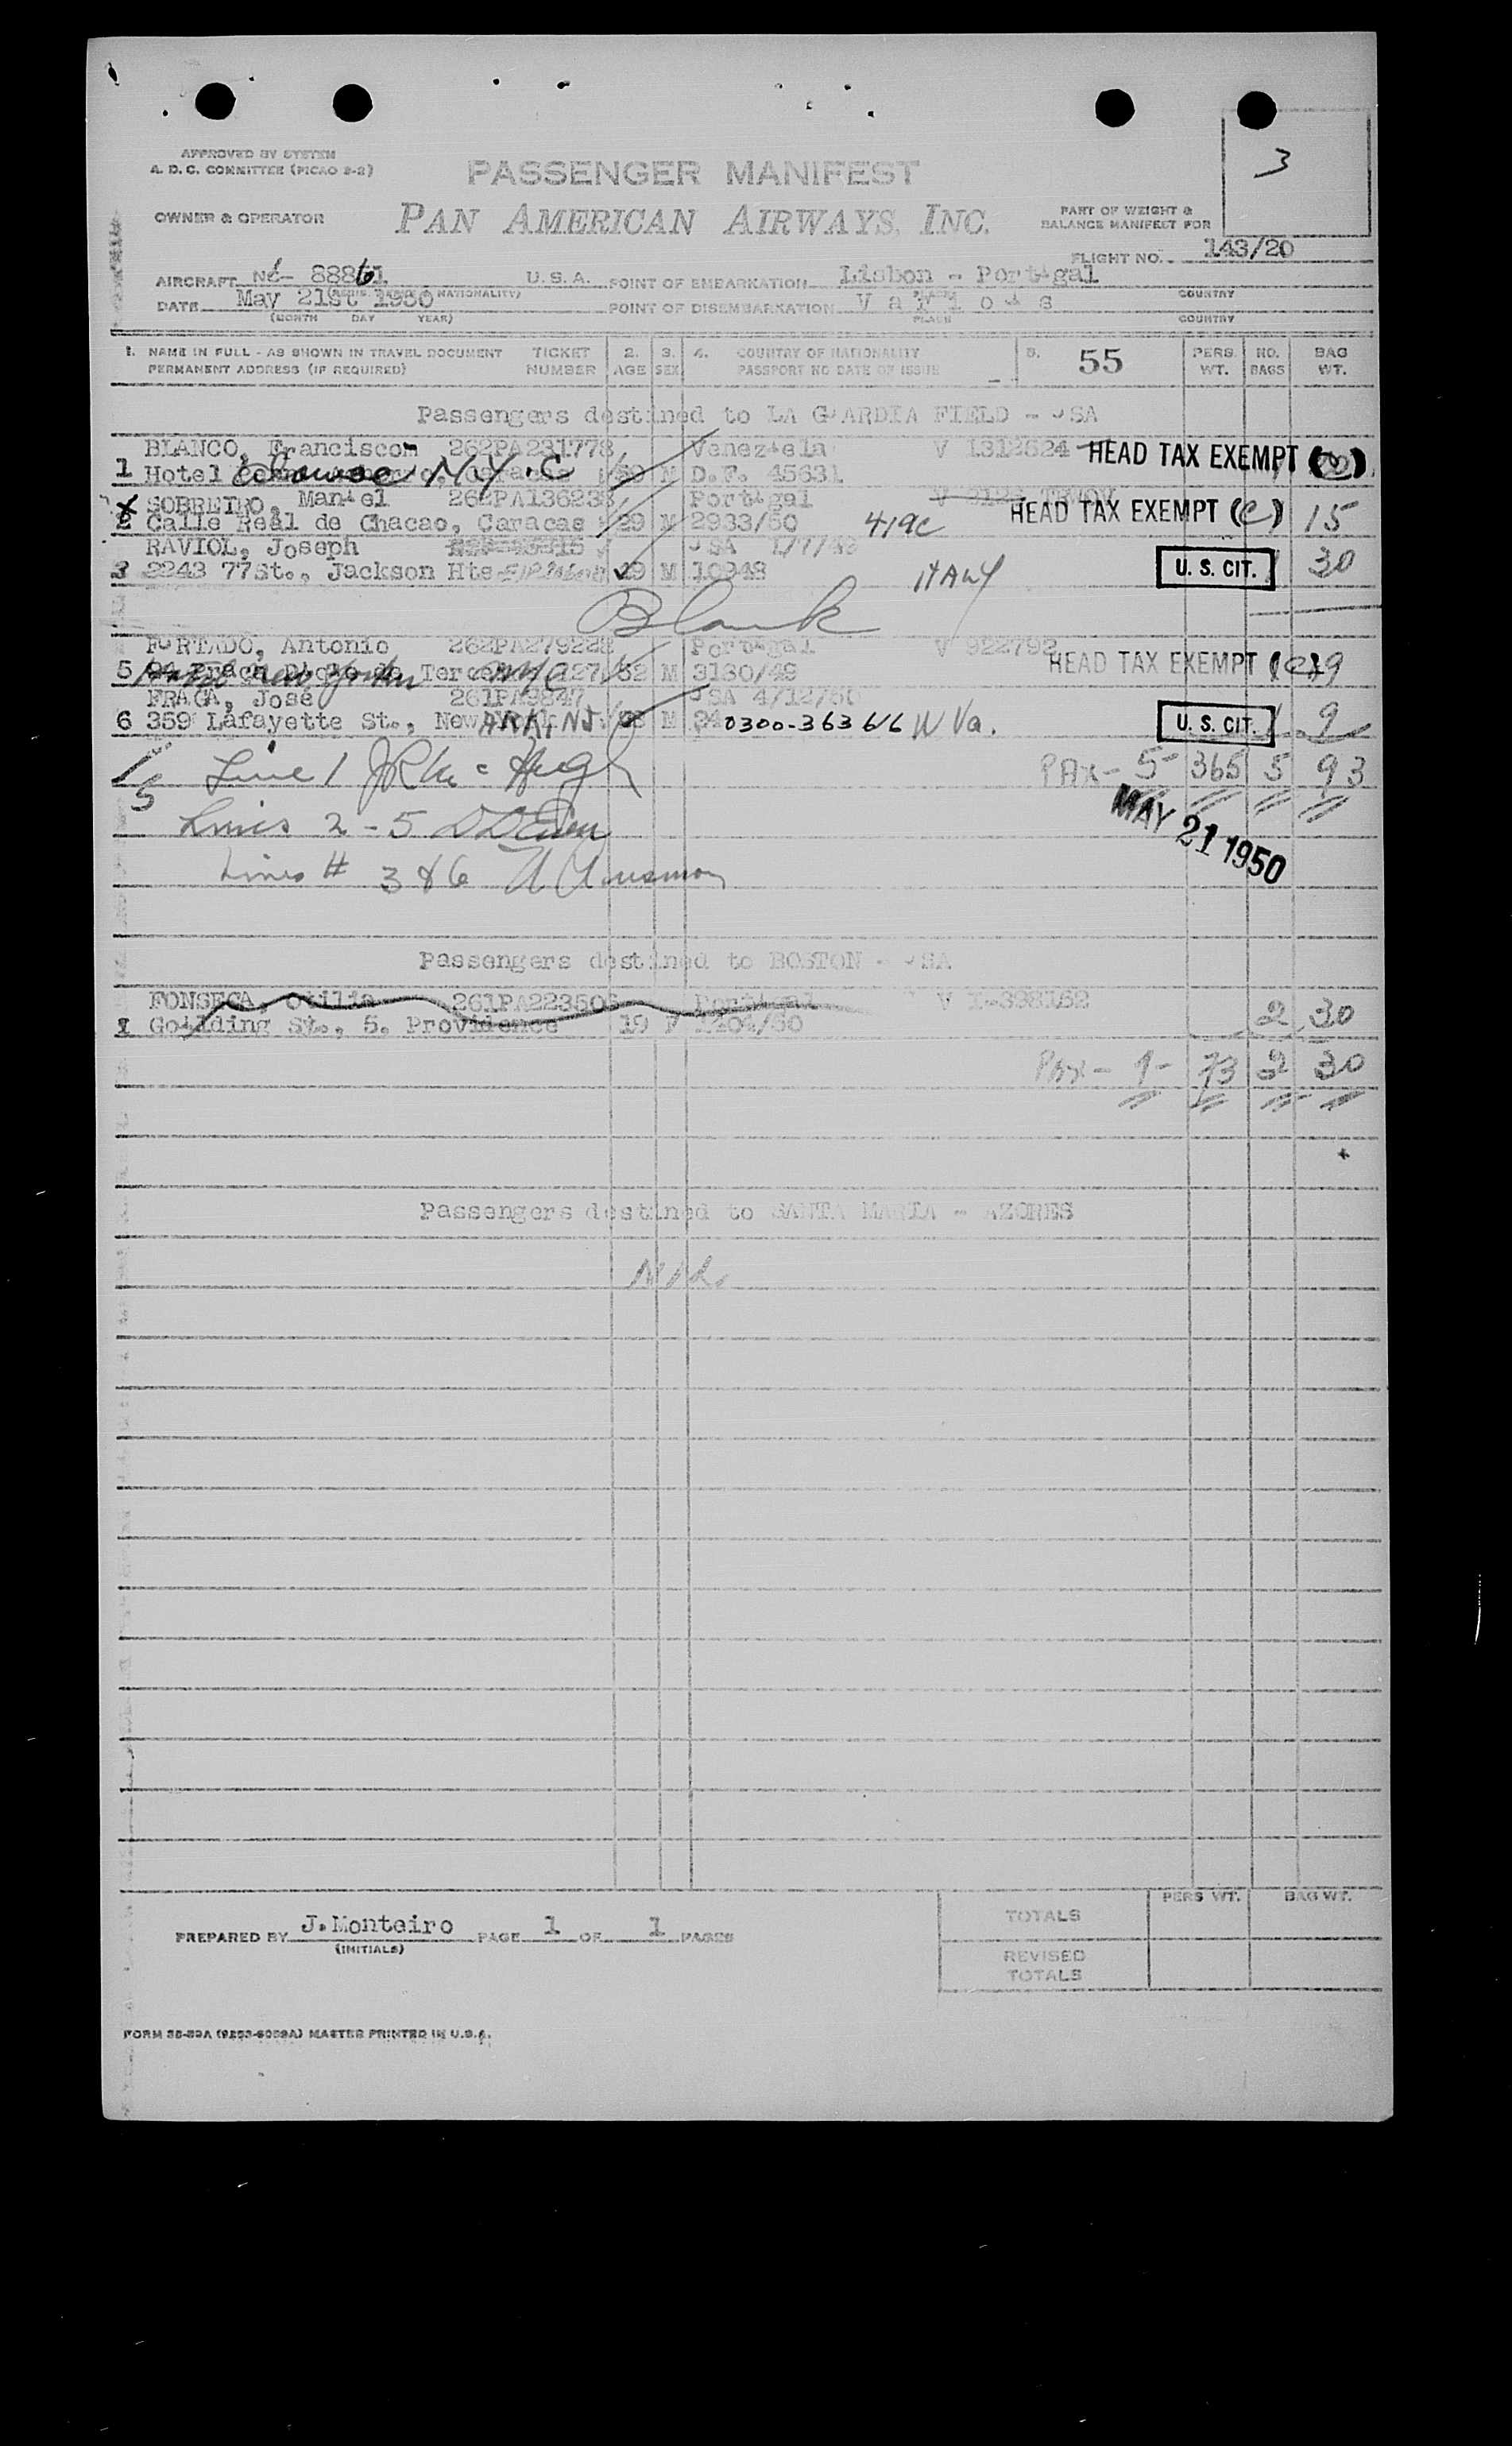 3
APPROVED BY SYSTEM
A. D. C. COMMITTEE (PICAO 2-2)
PASSENGER MANIFEST
OWNER & OPERATOR
PAN AMERICAN AIRWAYS, INC.
PART OF WEIGHT &
BALANCE MANIFEST FOR
FLIGHT NO. 143/20
AIRCRAFT NC- 88861 U. S. A. POINT OF EMBARKATION Lisbon - Portugal
NATIONALITY) COUNTRY
DATE May 21st 1950 POINT OF DISEMBARKATION Various
(MONTH DAY YEAR) PLACE COUNTRY
1. NAME IN FULL - AS SHOWN IN TRAVEL DOCUMENT TICKET 2. 3. 4. COUNTRY OF NATIONALITY 5. 55 PERS. NO. BAG
PERMANENT ADDRESS (IF REQUIRED) NUMBER AGE SEX PASSPORT NO DATE OF ISSUE WT. BAGS WT.
Passengers destined to LA GUARDIA FIELD - USA
BLANCO, Francisco 262PA231778 Venezuela V 1312524 HEAD TAX EXEMPT
1 Hotel N.Y.C 59 M D.F. 45631
SOBREIRO, Manuel 262PA136238 Portugal HEAD TAX EXEMPT (C) 15
2 Calle Real de Chacao, Caracas 29 M 2933/50 419c
RAVIOL, Joseph USA 1/7/48
3 2243 77St., Jackson Hts 49 M 10948 ITALY U. S. CIT. 30
Blank
FURTADO, Antonio 262PA279228 Portugal V 922792
5 52 M 3130/49 HEAD TAX EXEMPT (C) 9
FRAGA, José 261PA9847 USA 4/12/50
6 359 Lafayette St., NewARK, NJ. M 0300-363616 W Va. U. S. CIT. 9
Line 1 JR Mc Hugh PAX- 5- 365 5 93
MAY 21 1950
Lines 2 - 5
Lines # 3 & 6
Passengers destined to BOSTON - USA
FONSECA, Otilia 261PA223506 Portugal
1 Goulding St., 5. Providence 19 F 1204/50 2 30
PAX- 1- 73 2 30
Passengers destined to SANTA MARIA - AZORES
Nil.
PREPARED BY J.Monteiro PAGE 1 OF 1 PAGES
(INITIALS)
PERS WT. BAG WT.
TOTALS
REVISED
TOTALS
MASTER PRINTED IN U.S.A.